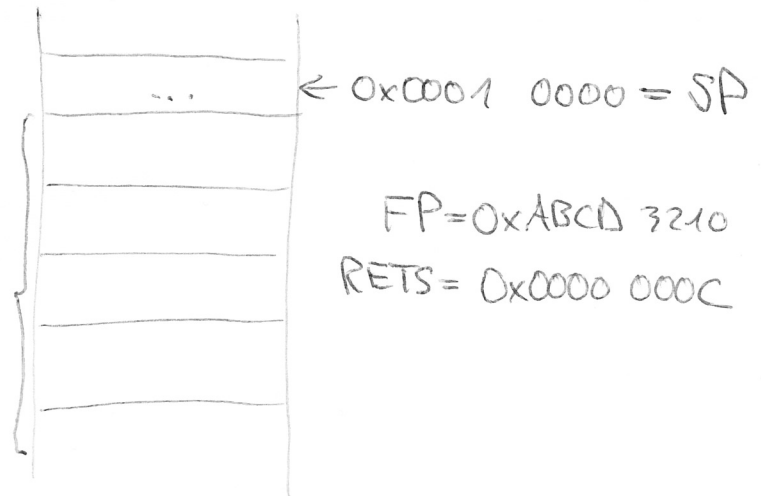 ... ← 0x0001 0000 = SP
FP=0xABCD 3210
RETS= 0x0000 000C